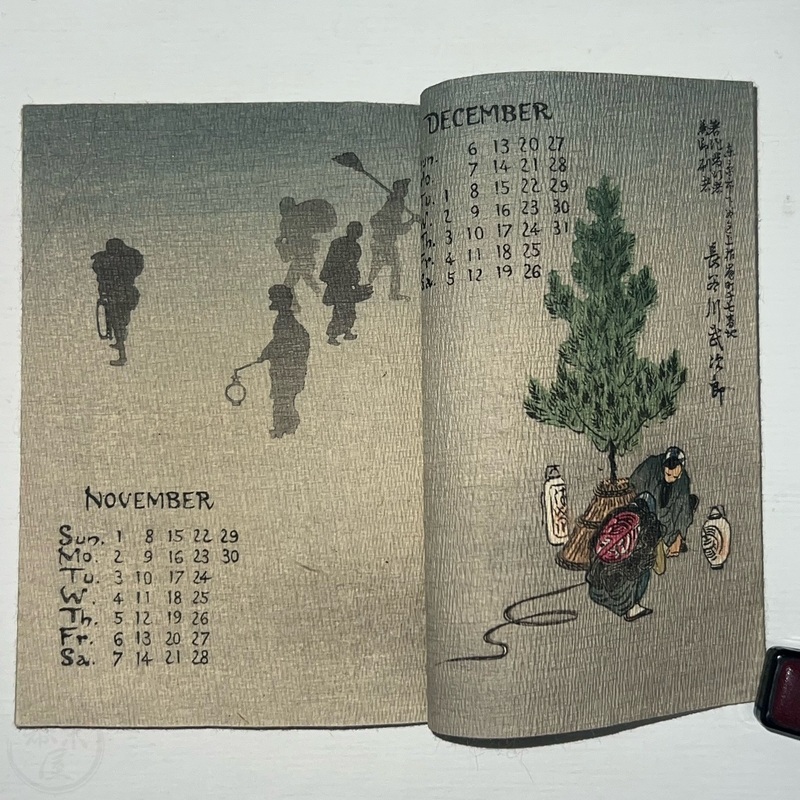 NOVEMBER
Sun. 1 8 15 22 29
Mo. 2 9 16 23 30
Tu. 3 10 17 24
W. 4 11 18 25
Th. 5 12 19 26
Fr. 6 13 20 27
Sa. 7 14 21 28
DECEMBER
un. 6 13 20 27
o. 7 14 21 28
Tu. 1 8 15 22 29
W. 2 9 16 23 30
Th. 3 10 17 24 31
Fr. 4 11 18 25
Sa. 5 12 19 26
東京市下谷区上根岸町十七番地
長谷川武次郎